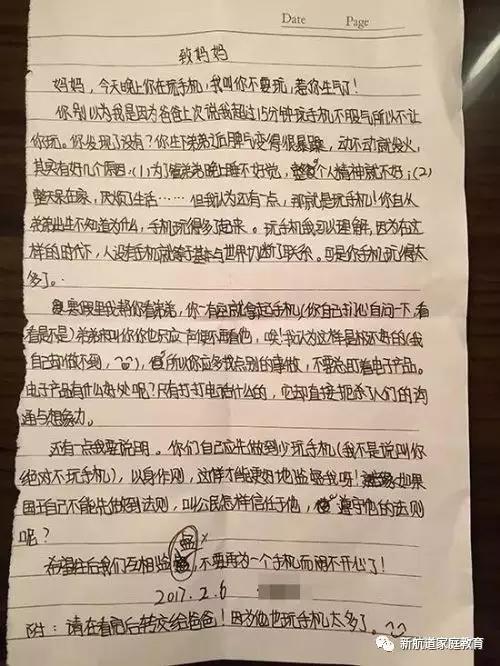 Date Page
致妈妈
妈妈，今天晚上你在玩手机，我叫你不要玩，惹你生气了！
你别以为我是因为爸爸上次说我超过15分钟玩手机不服气所以不让
你玩。你发现了没有？你生下弟弟后脾气变得很暴躁，动不动就发火，
其实有好几个原因：(1)为了管弟弟晚上睡不好觉，整个人精神就不好；(2)
整天呆在家，厌烦了生活……但我认为还有一点，那就是玩手机！你自从
弟弟出生不知道为什么，手机玩得多了起来。玩手机我可以理解，因为在这
样的时代下，人没有手机就等于基本与世界切断了联系。可是你手机玩得太
多了。
寒假里我帮你看弟弟，你一有空就拿起手机(你自己打心自问一下，看
看是不是)弟弟来叫你你也只应一声便不再看他，唉！我认为这样是极不好的(我
自己却做不到，)，所以你应多找点别的事做，不要总盯着电子产品。
电子产品有什么好处呢？只有打打电话什么的，它却直接扼杀了人们的沟
通与想象力。
还有一点我要说明。你们自己应先做到少玩手机(我不是说叫你
绝对不玩手机)，以身作则，这样才能更好地监督我呀！如果
国王自己不能先做到法则，叫公民怎样信任他，遵守他的法则
呢？
希望往后我们互相监督，不要再为一个手机而闹不开心了！
2017.2.6
附：请在看完后转交给爸爸！因为他也玩手机太多了。
新航道家庭教育